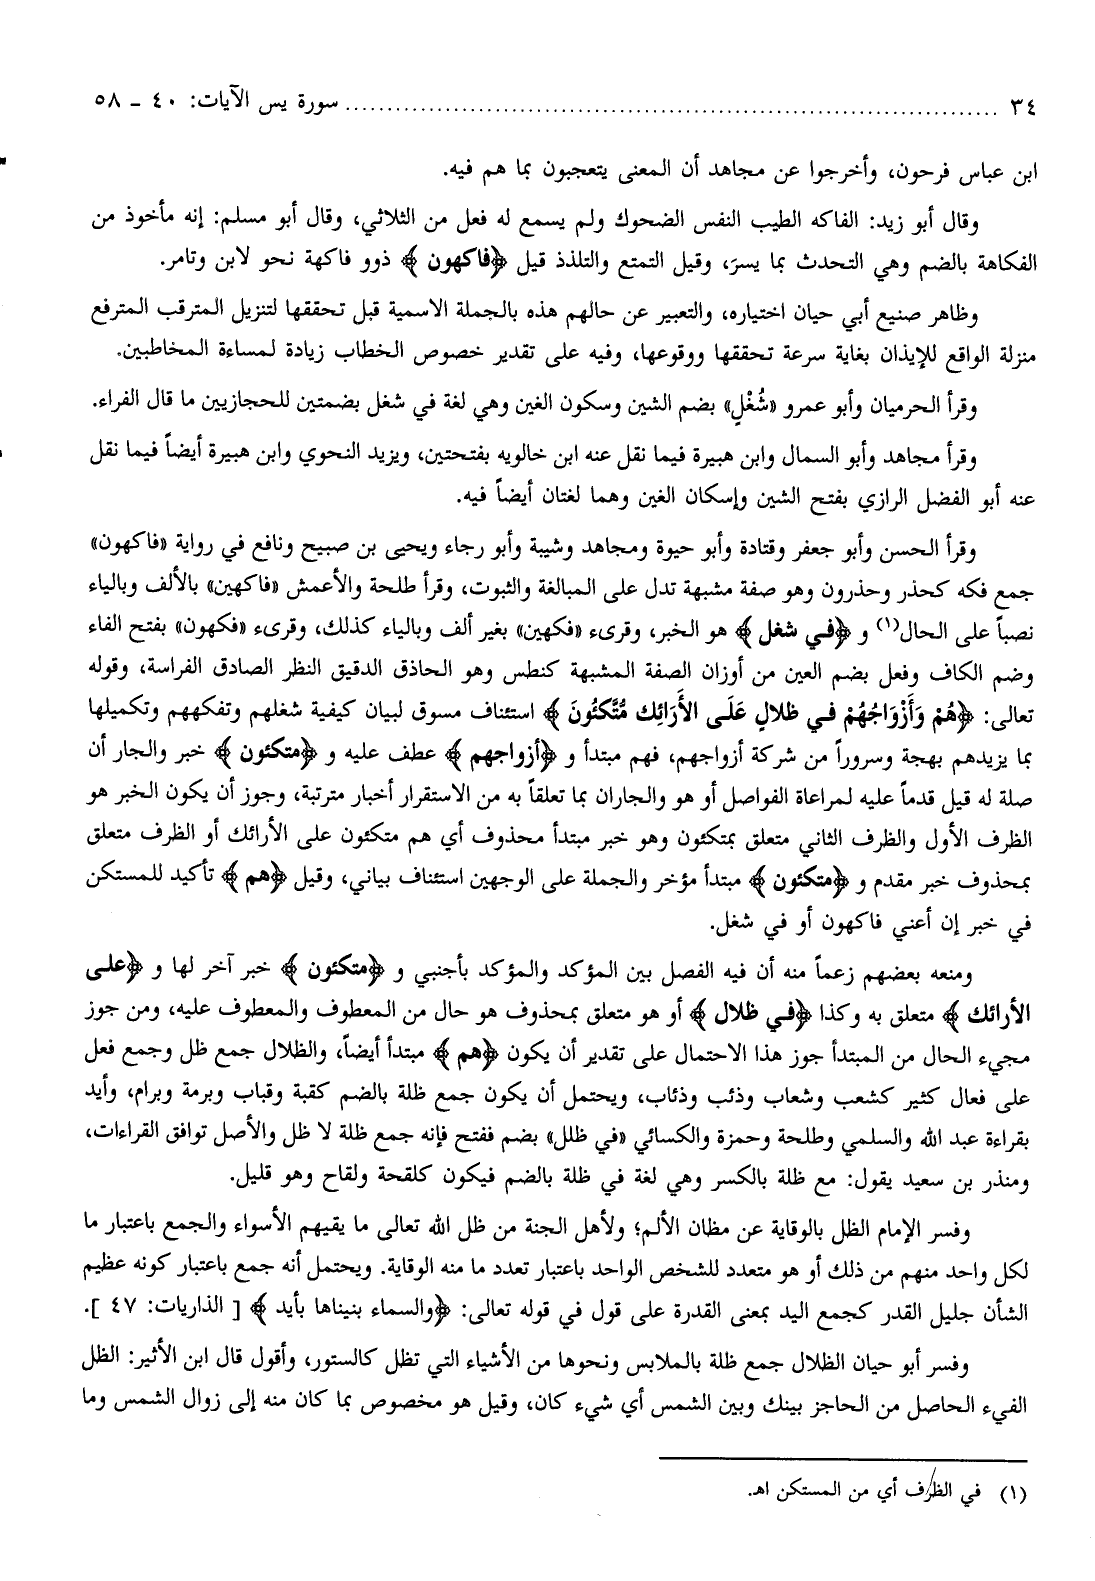 ٣٤ ........................................................................ سورة يس الآيات: ٤٠ ـ ٥٨
ابن عباس فرحون، وأخرجوا عن مجاهد أن المعنى يتعجبون بما هم فيه.
وقال أبو زيد: الفاكه الطيب النفس الضحوك ولم يسمع له فعل من الثلاثي، وقال أبو مسلم: إنه مأخوذ من
الفكاهة بالضم وهي التحدث بما يسرّ، وقيل التمتع والتلذذ قيل ﴿فاكهون﴾ ذوو فاكهة نحو لابن وتامر.
وظاهر صنيع أبي حيان اختياره، والتعبير عن حالهم هذه بالجملة الاسمية قبل تحققها لتنزيل المترقب المترفع
منزلة الواقع للإيذان بغاية سرعة تحققها ووقوعها، وفيه على تقدير خصوص الخطاب زيادة لمساءة المخاطبين.
وقرأ الحرميان وأبو عمرو «شُغْلٍ» بضم الشين وسكون الغين وهي لغة في شغل بضمتين للحجازيين ما قال الفراء.
وقرأ مجاهد وأبو السمال وابن هبيرة فيما نقل عنه ابن خالويه بفتحتين، ويزيد النحوي وابن هبيرة أيضاً فيما نقل
عنه أبو الفضل الرازي بفتح الشين وإسكان الغين وهما لغتان أيضاً فيه.
وقرأ الحسن وأبو جعفر وقتادة وأبو حيوة ومجاهد وشيبة وأبو رجاء ويحيى بن صبيح ونافع في رواية «فاكهون»
جمع فكه كحذر وحذرون وهو صفة مشبهة تدل على المبالغة والثبوت، وقرأ طلحة والأعمش «فاكهين» بالألف وبالياء
نصباً على الحال(١) و ﴿في شغل﴾ هو الخبر، وقرىء «فكهين» بغير ألف وبالياء كذلك، وقرىء «فكهون» بفتح الفاء
وضم الكاف وفعل بضم العين من أوزان الصفة المشبهة كنطس وهو الحاذق الدقيق النظر الصادق الفراسة، وقوله
تعالى: ﴿هُمْ وَأَزْوَاجُهُمْ في ظلالٍ عَلَى الأَرَائِك مُتَّكئُونَ﴾ استئناف مسوق لبيان كيفية شغلهم وتفكههم وتكميلها
بما يزيدهم بهجة وسروراً من شركة أزواجهم، فهم مبتدأ و ﴿أزواجهم﴾ عطف عليه و ﴿متكئون﴾ خبر والجار أن
صلة له قيل قدماً عليه لمراعاة الفواصل أو هو والجاران بما تعلقاً به من الاستقرار أخبار مترتبة، وجوز أن يكون الخبر هو
الظرف الأول والظرف الثاني متعلق بمتكئون وهو خبر مبتدأ محذوف أي هم متكئون على الأرائك أو الظرف متعلق
بمحذوف خبر مقدم و ﴿متكئون﴾ مبتدأ مؤخر والجملة على الوجهين استئناف بياني، وقيل ﴿هم﴾ تأكيد للمستكن
في خبر إن أعني فاكهون أو في شغل.
ومنعه بعضهم زعماً منه أن فيه الفصل بين المؤكد والمؤكد بأجنبي و ﴿متكئون﴾ خبر آخر لها و ﴿على
الأرائك﴾ متعلق به وكذا ﴿في ظلال﴾ أو هو متعلق بمحذوف هو حال من المعطوف والمعطوف عليه، ومن جوز
مجيء الحال من المبتدأ جوز هذا الاحتمال على تقدير أن يكون ﴿هم﴾ مبتدأ أيضاً، والظلال جمع ظل وجمع فعل
على فعال كثير كشعب وشعاب وذئب وذئاب، ويحتمل أن يكون جمع ظلة بالضم كقبة وقباب وبرمة وبرام، وأيد
بقراءة عبد الله والسلمي وطلحة وحمزة والكسائي «في ظلل» بضم ففتح فإنه جمع ظلة لا ظل والأصل توافق القراءات،
ومنذر بن سعيد يقول: مع ظلة بالكسر وهي لغة في ظلة بالضم فيكون كلقحة ولقاح وهو قليل.
وفسر الإمام الظل بالوقاية عن مظان الألم؛ ولأهل الجنة من ظل الله تعالى ما يقيهم الأسواء والجمع باعتبار ما
لكل واحد منهم من ذلك أو هو متعدد للشخص الواحد باعتبار تعدد ما منه الوقاية. ويحتمل أنه جمع باعتبار كونه عظيم
الشأن جليل القدر كجمع اليد بمعنى القدرة على قول في قوله تعالى: ﴿والسماء بنيناها بأيد﴾ [ الذاريات: ٤٧ ].
وفسر أبو حيان الظلال جمع ظلة بالملابس ونحوها من الأشياء التي تظل كالستور، وأقول قال ابن الأثير: الظل
الفيء الحاصل من الحاجز بينك وبين الشمس أي شيء كان، وقيل هو مخصوص بما كان منه إلى زوال الشمس وما
(١) في الظرف أي من المستكن اهـ.